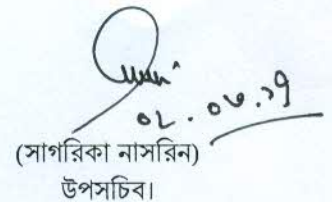 ০৮.০৬.১৭
(সাগরিকা নাসরিন)
উপসচিব।